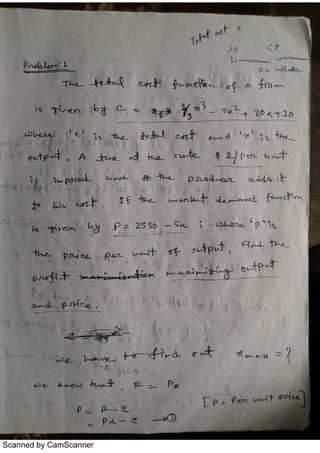 Total cost 0
>0 <0
↳ minimum ↳ maximum
0 = inflation
Problem: 1
The total cost function of a firm
is given by C = 1/3 x³ - 5x² + 20x + 10
where 'c' is the total cost and 'x' is the
output. A tax at the rate $ 2/per unit
is imposed and the producer adds it
to his cost. If the market demand function
is given by P = 2530 - 5x ; where 'p' is
the price per unit of output, Find the
profit maximinization maximizing output
and price.
we have to find out x max = ?
we know that, R = Px
P = R - C
= Px - C → ①
[P = Per unit price]
Scanned by CamScanner